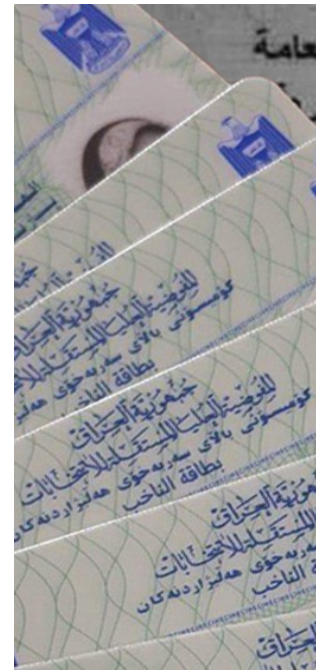 العامة
جمهورية العراق
المفوضية العليا المستقلة
كۆمسیۆنی بالای سەربەخۆی
بطاقة الناخب
جمهورية العراق
المفوضية العليا المستقلة للانتخابات
كۆمسیۆنی بالای سەربەخۆی هەلبژاردنەكان
بطاقة الناخب
جمهورية العراق
المستقلة للانتخابات
سەربەخۆی هەلبژاردنەكان
الناخب
العراق